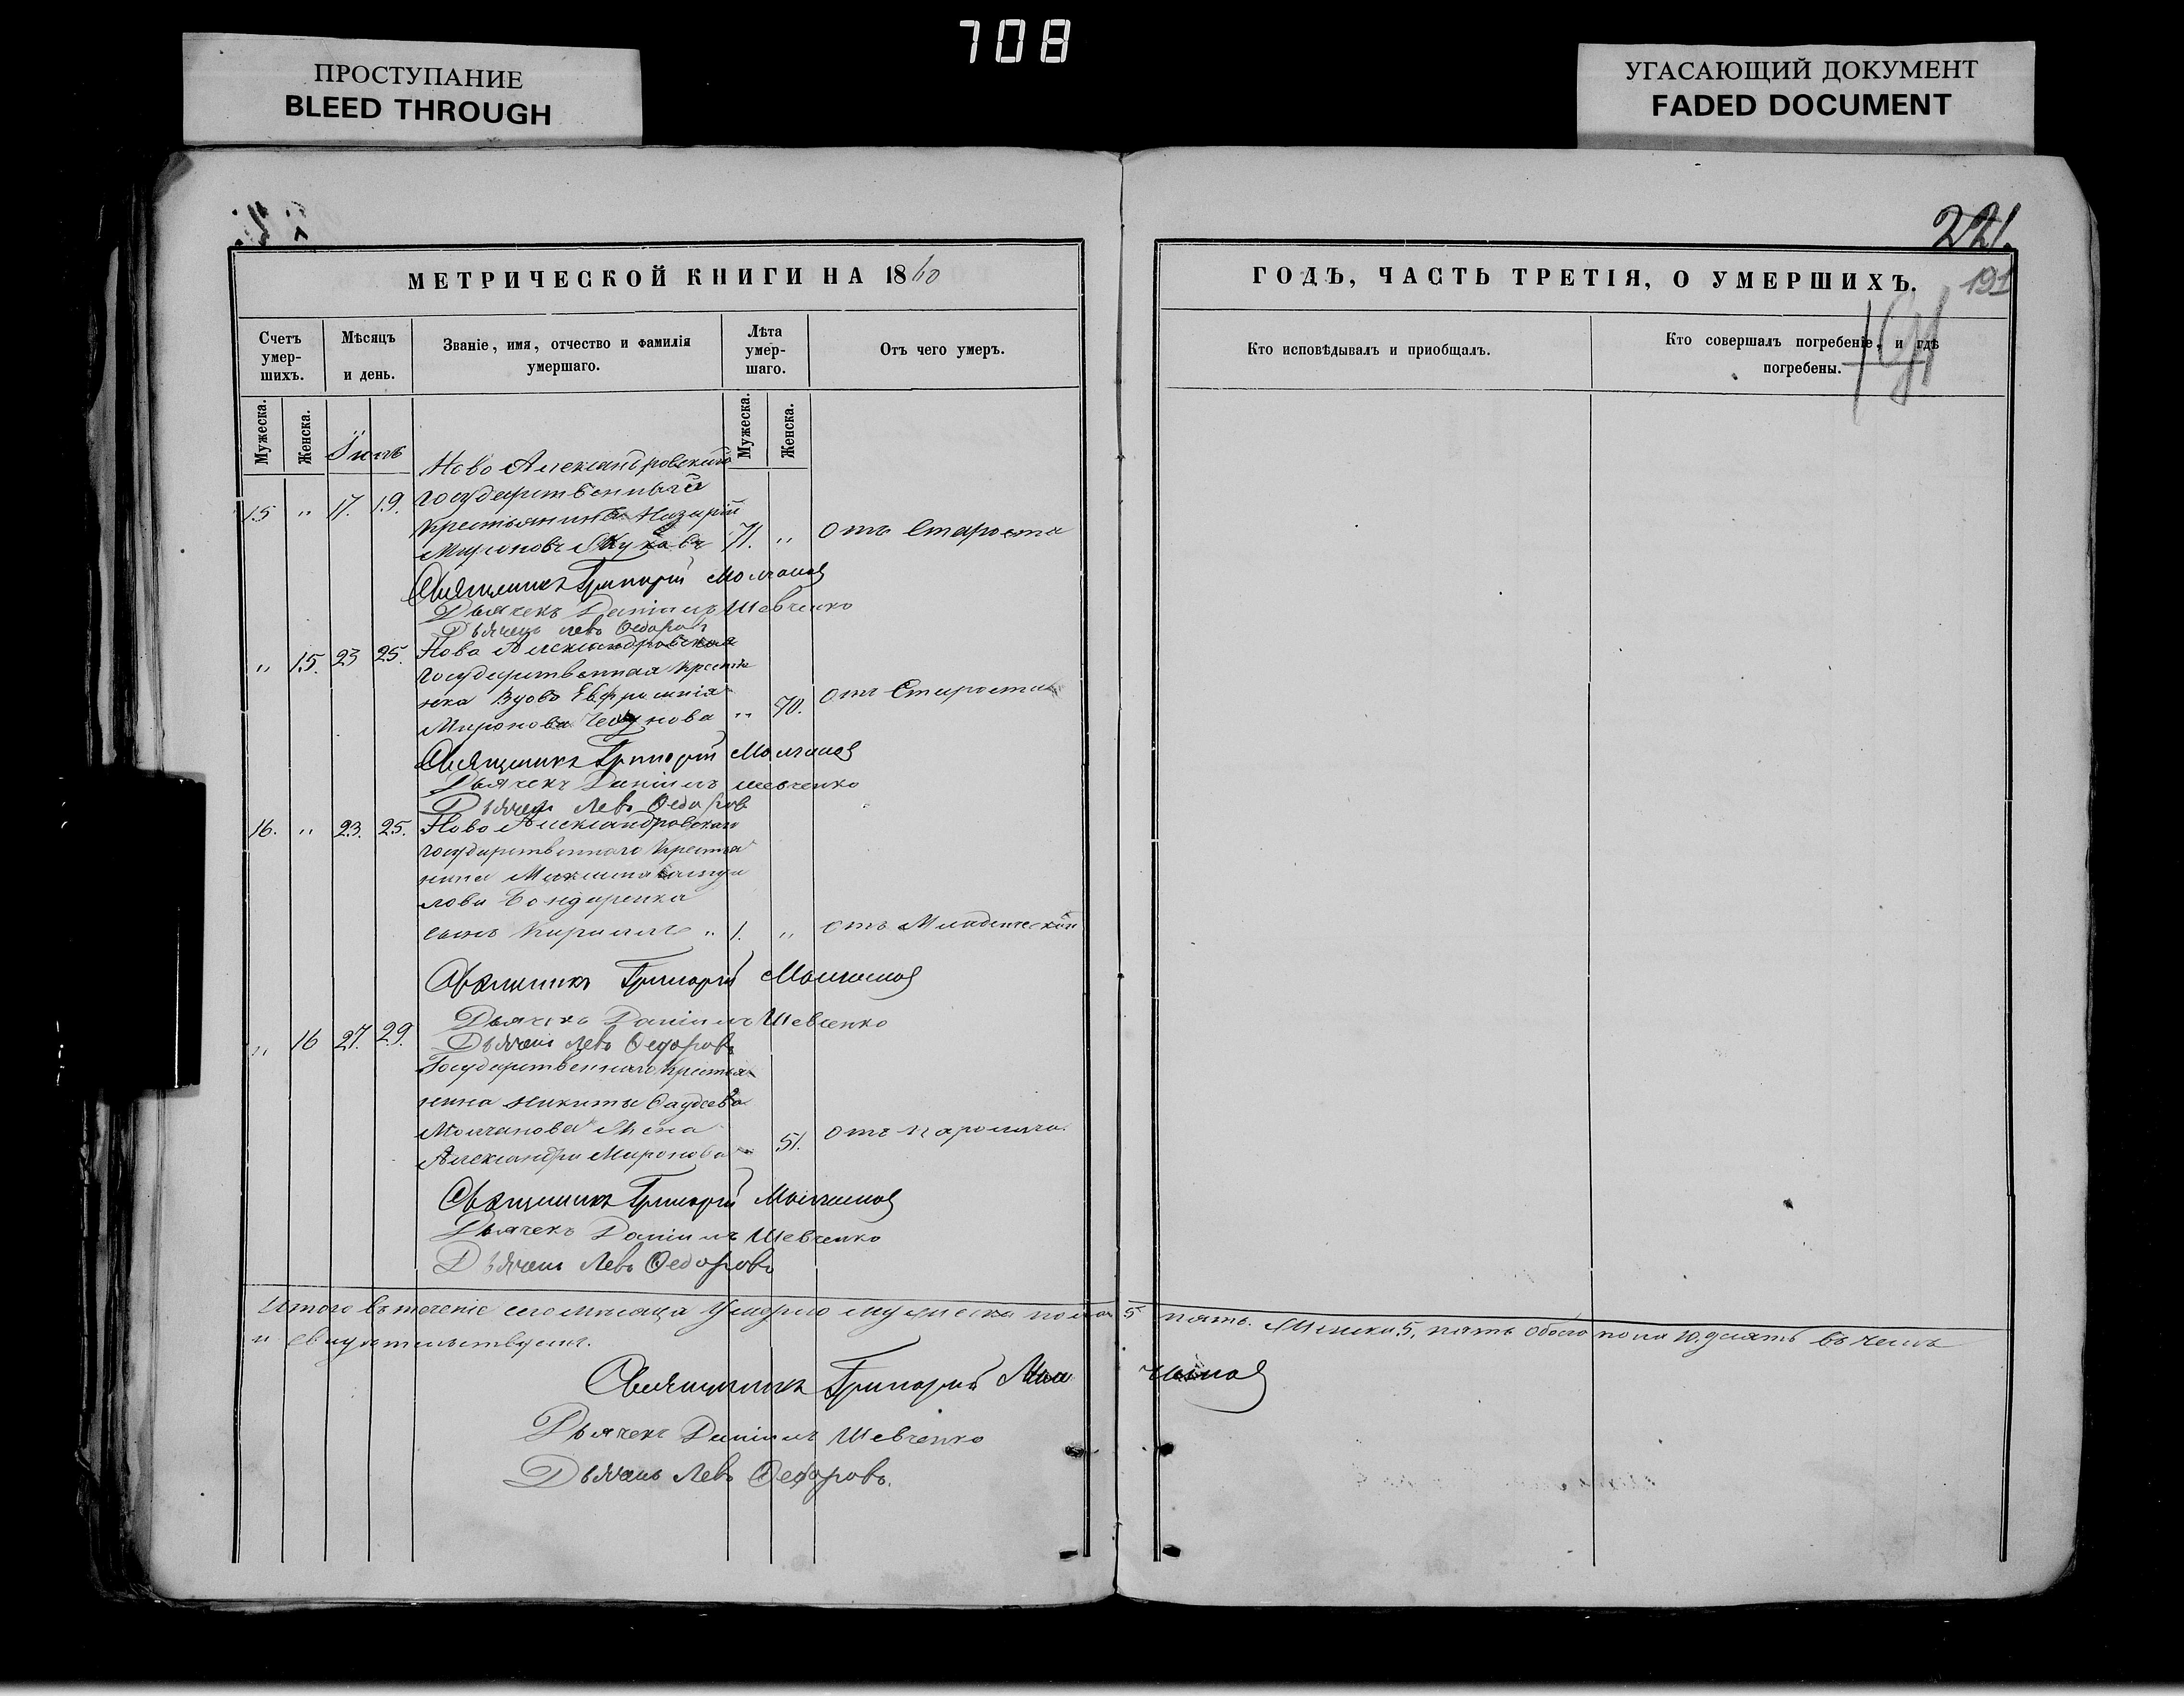 708
ПРОСТУПАНИЕ
BLEED THROUGH
УГАСАЮЩИЙ ДОКУМЕНТ
FADED DOCUMENT
221.
191
МЕТРИЧЕСКОЙ КНИГИ НА 1860
ГОДЪ, ЧАСТЬ ТРЕТІЯ, О УМЕРШИХЪ.
191
Счетъ умер-шихъ.
Мѣсяцъ и день.
Званіе, имя, отчество и фамилія умершаго.
Лѣта умер-шаго.
Отъ чего умеръ.
Кто исповѣдывалъ и приобщалъ.
Кто совершалъ погребеніе, и гдѣ погребены.
Мужеска.
Женска.
Мужеска.
Женска.
Ново Александровскій
15 " 17. 19. государственный
крестьянинъ Назарій
Мироновъ 71. " отъ Старости
Священникъ Григорій Молчанов
Дьячекъ Даніилъ Шевченко
Дьячекъ Левъ Ѳедоров
" 15. 23 25. Ново Александровская
государственная крестья
нка Вдова Евфросинія
Миронова " 70. отъ Старости
Священникъ Григорій Молчанов
Дьячекъ Даніилъ Шевченко
Дьячекъ Левъ Ѳедоров
16. " 23. 25. Ново Александровскаго
государственнаго крестья
нина Максима
лова Бондаренка
сынъ Кириллъ " 1. " отъ Младенческой
Священникъ Григорій Молчанов
Дьячекъ Даніилъ Шевченко
" 16 27. 29. Дьячекъ Левъ Ѳедоровъ
Государственнаго крестья
нина Никиты Ѳаддеева
Молчанова Жена
Александра Миронова " 51. отъ паралича.
Священникъ Григорій Молчанов
Дьячекъ Даніилъ Шевченко
Дьячекъ Левъ Ѳедоровъ
Итого въ теченіе сего мѣсяца умерло мужеска пола 5 пять. Женска 5. пять обоего пола 10. десять въ чемъ
и свидетельствуемъ.
Священникъ Григорій Молчанов
Дьячекъ Даніилъ Шевченко
Дьячекъ Левъ Ѳедоровъ.